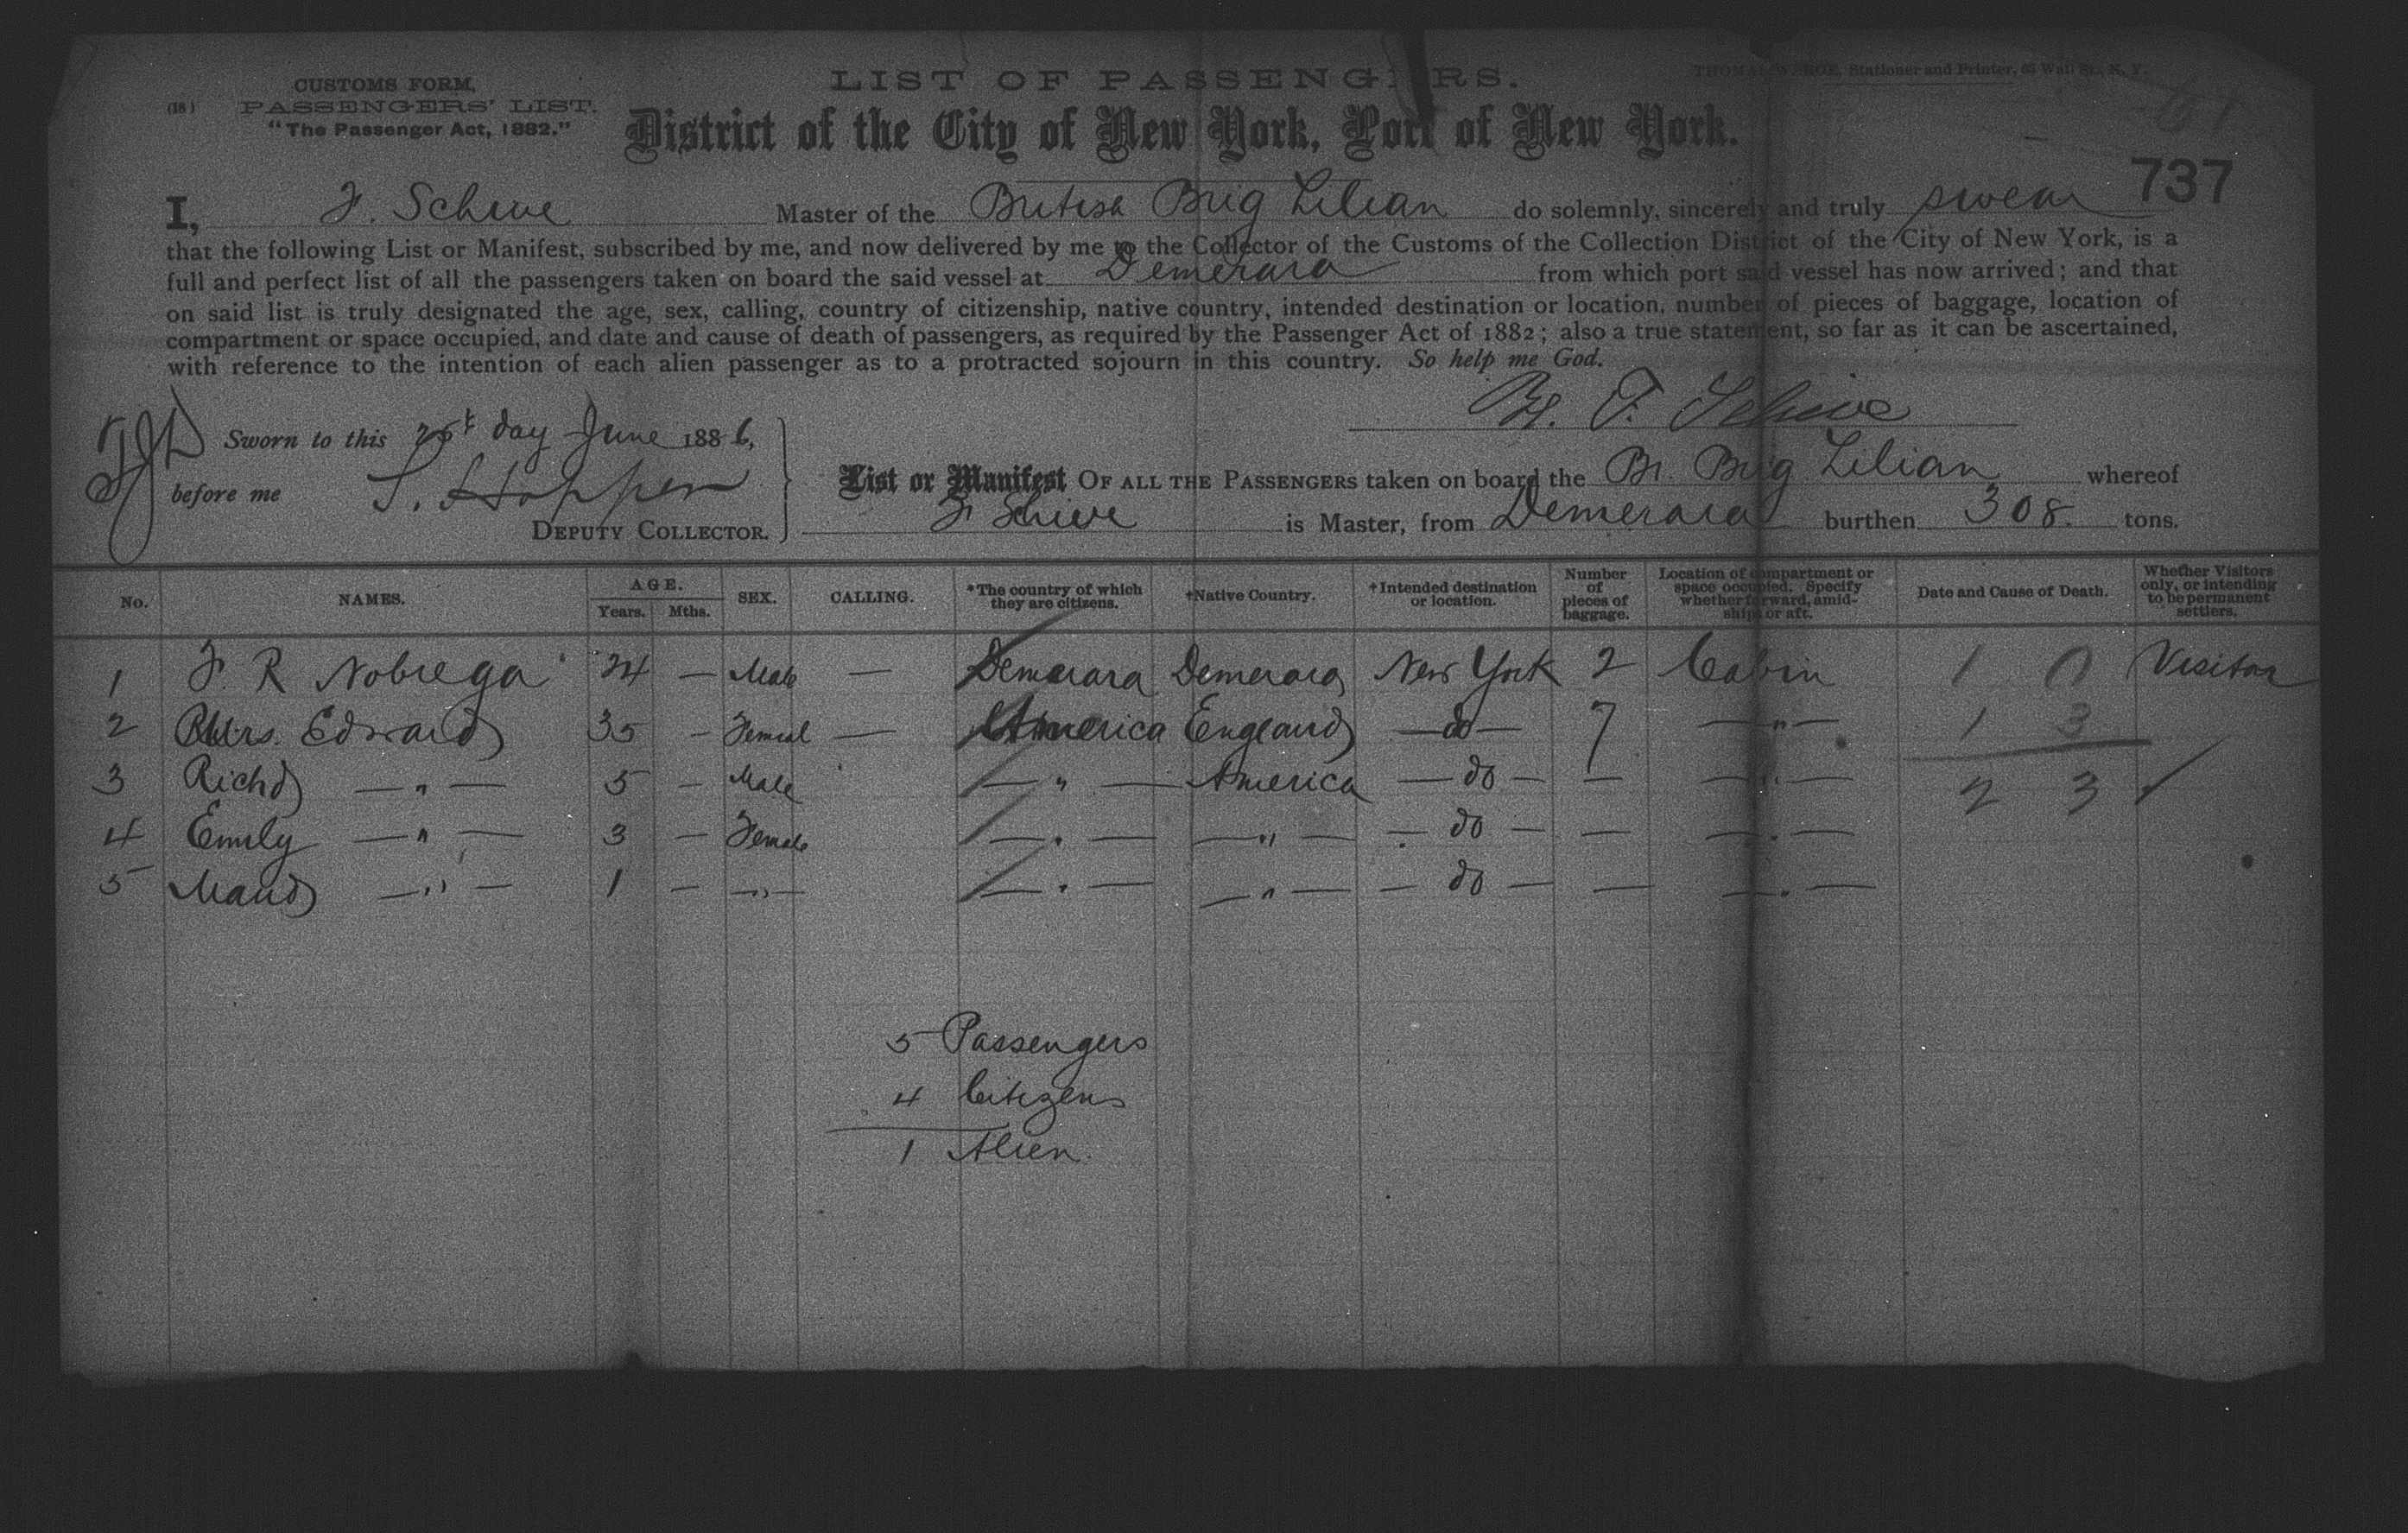 CUSTOMS FORM,
(18) PASSENGERS' LIST.
"The Passenger Act, 1882."
LIST OF PASSENGERS.
Stationer and Printer, 65 Wall St., N. Y.
District of the City of New York, Port of New York.
737
I, F. Schive Master of the British Brig Lilian do solemnly, sincerely and truly swear
that the following List or Manifest, subscribed by me, and now delivered by me to the Collector of the Customs of the Collection District of the City of New York, is a
full and perfect list of all the passengers taken on board the said vessel at Demerara from which port said vessel has now arrived; and that
on said list is truly designated the age, sex, calling, country of citizenship, native country, intended destination or location, number of pieces of baggage, location of
compartment or space occupied, and date and cause of death of passengers, as required by the Passenger Act of 1882; also a true statement, so far as it can be ascertained,
with reference to the intention of each alien passenger as to a protracted sojourn in this country. So help me God.
F. Schive
Sworn to this day June 1886,
before me Hopper
DEPUTY COLLECTOR.
List or Manifest OF ALL THE PASSENGERS taken on board the Br. Brig Lilian whereof
F Schive is Master, from Demerara burthen 308. tons.
No. NAMES. AGE. Years. Mths. SEX. CALLING. *The country of which they are citizens. †Native Country. †Intended destination or location. Number of pieces of baggage. Location of compartment or space occupied. Specify whether forward, amidships or aft. Date and Cause of Death. Whether Visitors only, or intending to be permanent settlers.
1 F. R Nobrega 24 — Male — Demerara Demerara New York 2 Cabin 1 0 Visitor
2 Mrs. Edward 35 — Femal — America England — do — 7 — " — 1 3
3 Richd — " — 5 — Male — " — America — do — — — " — 2 3
4 Emily — " — 3 — Female — " — — " — — do — — — " —
5 Maud — " — 1 — — " — — " — — " — — do — — — " —
5 Passengers
4 Citizens
1 Alien.